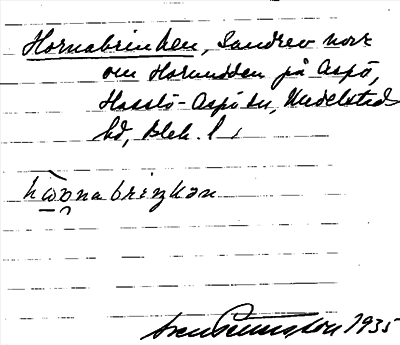 Hornabrinken, Sandrev norr
om Hornudden på Aspö,
Hasslö-Aspö sn, Medelstads
hd, Blek. l.
hὼɷnabriŋkən
1935